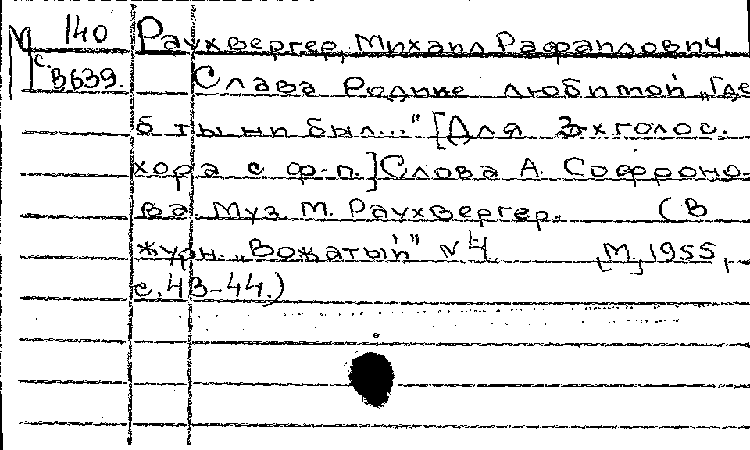 М 140 Раухвергер, Михаил Рафаилович
с. 3639. Слава Родине любимой „Где
б ты ни был..." [Для 2-хголос.
хора с ф-п.] Слова А. Софроно-
ва Муз. М. Раухвергер. (В
журн. „Вожатый" N 4 [М], 1955,
с. 43-44.)